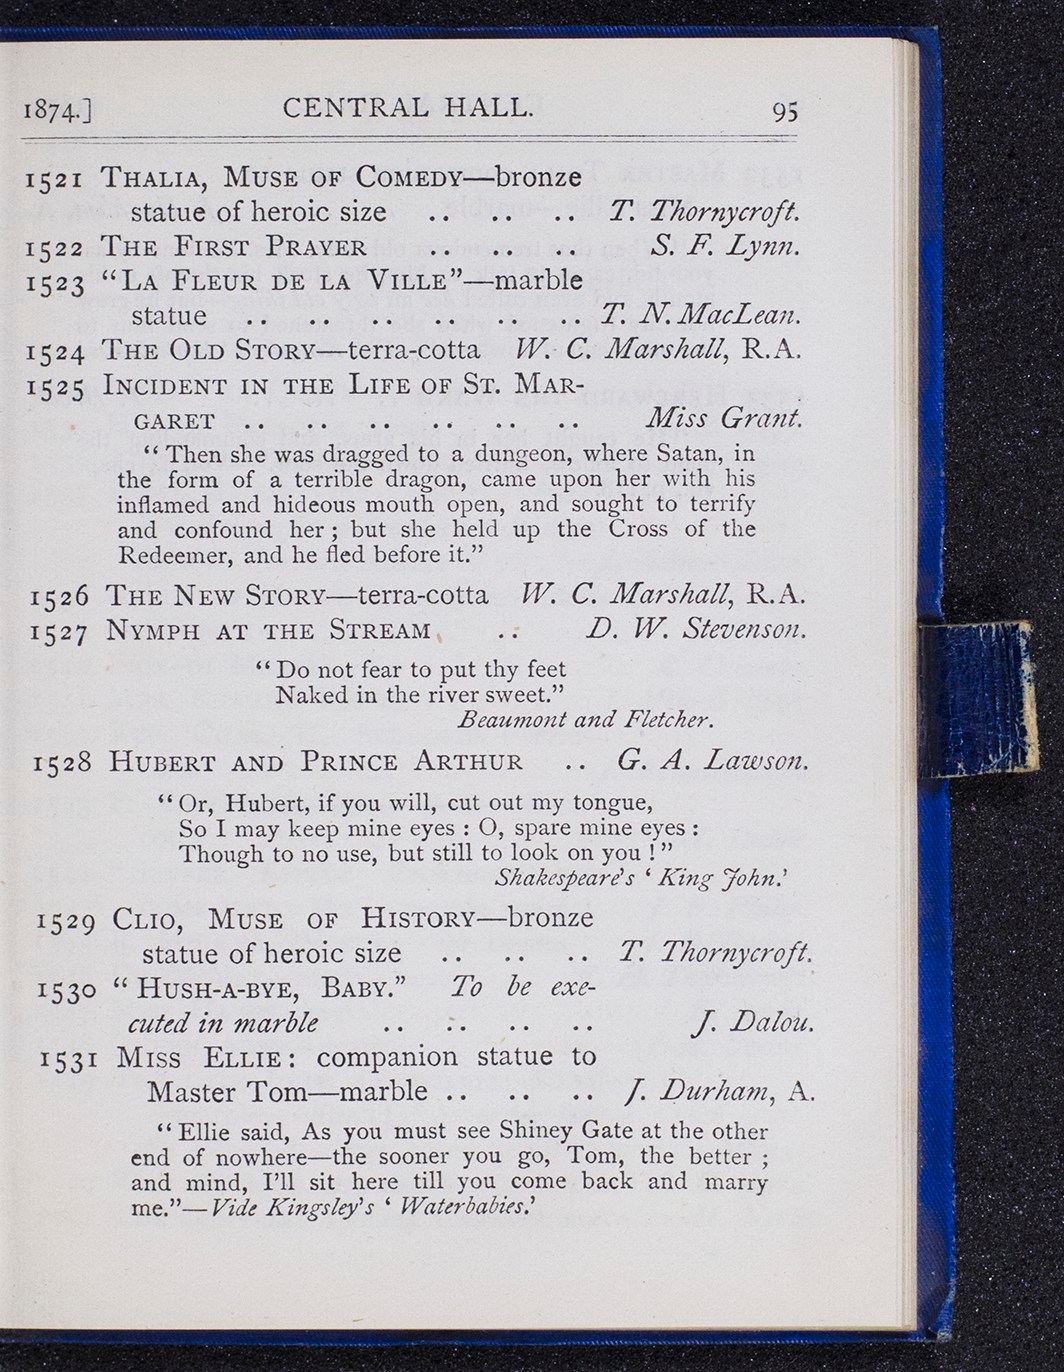 1874.] CENTRAL HALL. 95
1521 THALIA, MUSE OF COMEDY—bronze
statue of heroic size .. .. .. T. Thornycroft.
1522 THE FIRST PRAYER .. .. .. S. F. Lynn.
1523 “LA FLEUR DE LA VILLE”—marble
statue .. .. .. .. .. .. T. N. MacLean.
1524 THE OLD STORY—terra-cotta W. C. Marshall, R.A.
1525 INCIDENT IN THE LIFE OF ST. MAR-
GARET .. .. .. .. .. .. Miss Grant.
“Then she was dragged to a dungeon, where Satan, in
the form of a terrible dragon, came upon her with his
inflamed and hideous mouth open, and sought to terrify
and confound her; but she held up the Cross of the
Redeemer, and he fled before it.”
1526 THE NEW STORY—terra-cotta W. C. Marshall, R.A.
1527 NYMPH AT THE STREAM .. D. W. Stevenson.
“Do not fear to put thy feet
Naked in the river sweet.”
Beaumont and Fletcher.
1528 HUBERT AND PRINCE ARTHUR .. G. A. Lawson.
“Or, Hubert, if you will, cut out my tongue,
So I may keep mine eyes : O, spare mine eyes :
Though to no use, but still to look on you !”
Shakespeare's ‘King John.’
1529 CLIO, MUSE OF HISTORY—bronze
statue of heroic size .. .. .. T. Thornycroft.
1530 “HUSH-A-BYE, BABY.” To be exe-
cuted in marble .. .. .. .. J. Dalou.
1531 MISS ELLIE: companion statue to
Master Tom—marble .. .. .. J. Durham, A.
“Ellie said, As you must see Shiney Gate at the other
end of nowhere—the sooner you go, Tom, the better ;
and mind, I’ll sit here till you come back and marry
me.”—Vide Kingsley's ‘Waterbabies.’